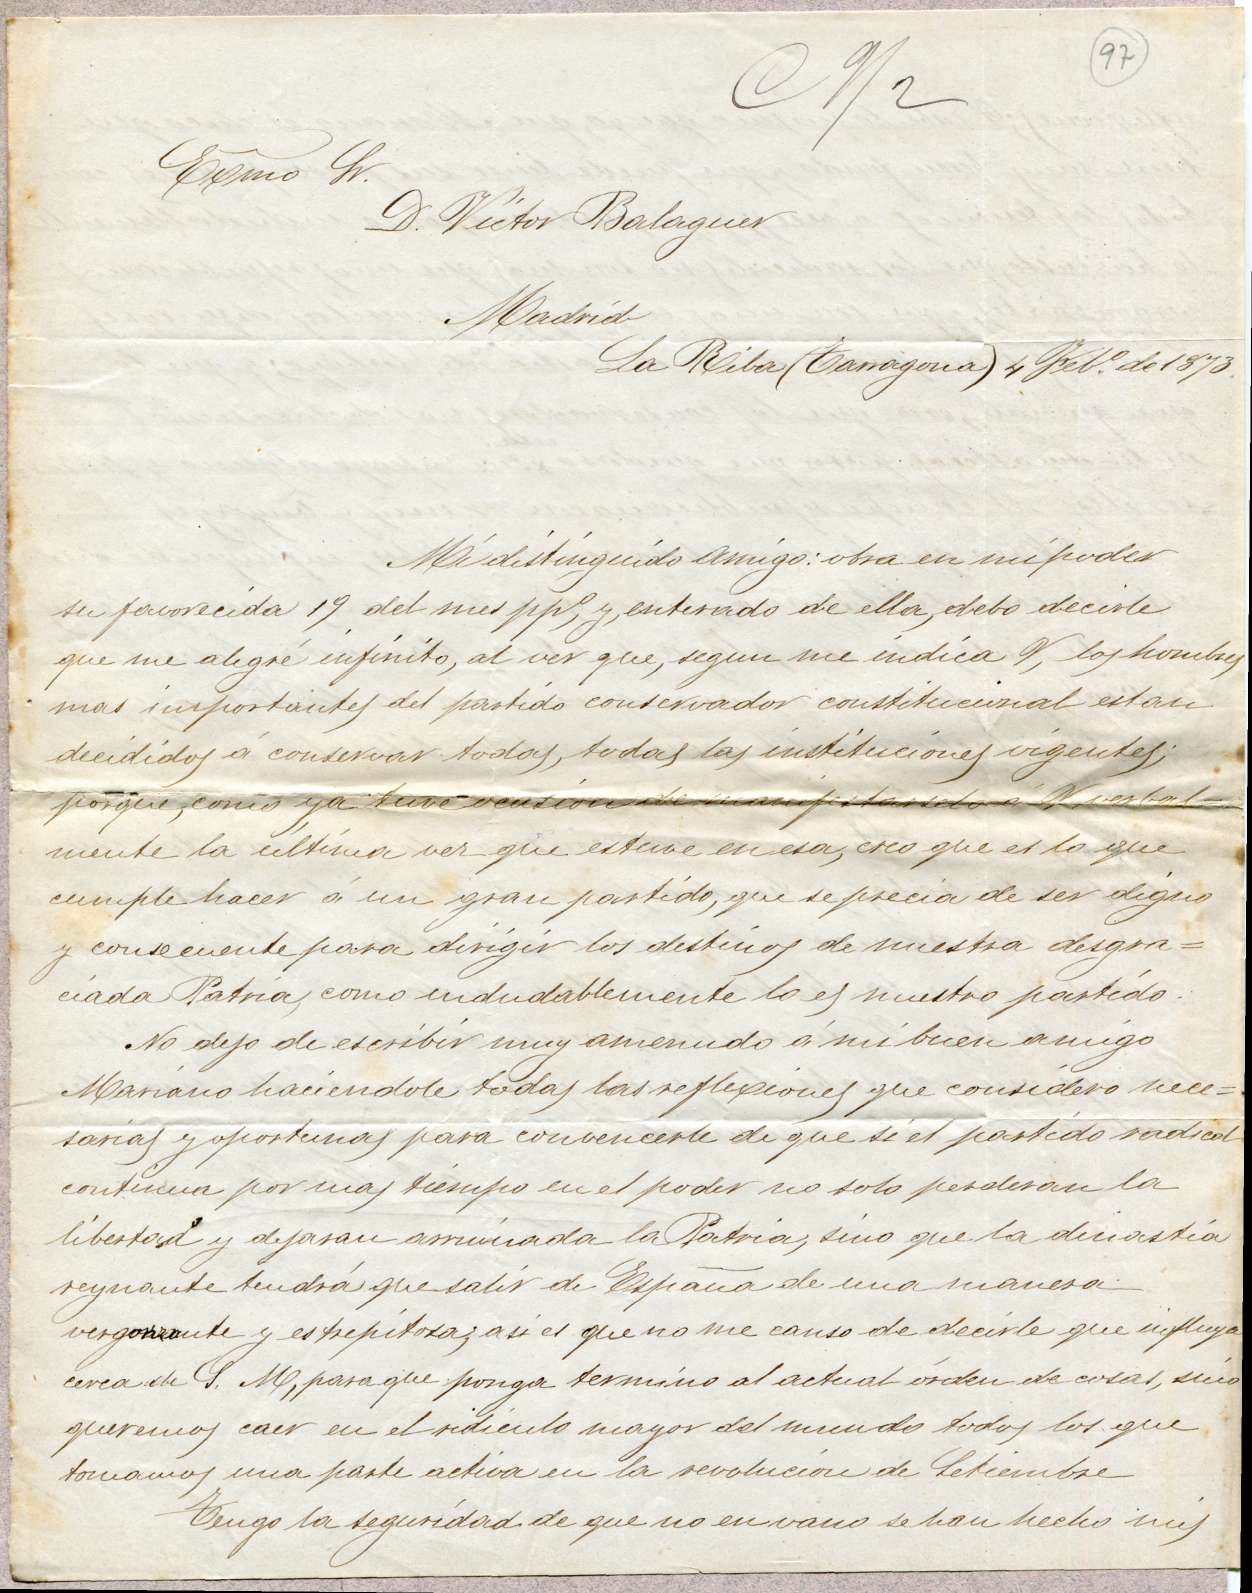 97
C 9/2
Exmo Sr.
D. Víctor Balaguer
Madrid
La Riba (Tarragona) 4 Feb.º de 1873.
Mi distinguido amigo: obra en mi poder
su favorecida 19 del mes ppº, y, enterado de ella, debo decirle
que me alegré infinito, al ver que, segun me indica V, los hombres
mas importantes del partido conservador constitucional estan
decididos á conservar todas, todas las instituciones vigentes;
porque, como ya tuve ocasion de manifestarselo á V verbal=
mente la última vez que estuve en esa, creo que es lo que
cumple hacer á un gran partido, que se precia de ser digno
y consecuente para dirigir los destinos de nuestra desgra=
ciada Patria, como indudablemente lo es nuestro partido.
No dejo de escribir muy amenudo á mi buen amigo
Mariano haciendole todas las reflexiones que considero nece=
sarias y oportunas para convencerle de que si el partido radical
continua por mas tiempo en el poder no solo perderan la
libertad y dejaran arruinada la Patria, sino que la dinastía
reynante tendrá que salir de España de una manera
vergonzante y estrepitosa; asi es que no me canso de decirle que influya
cerca de S. M, para que ponga termino al actual órden de cosas, sino
queremos caer en el ridiculo mayor del mundo todos los que
tomamos una parte activa en la revolucion de Setiembre
Tengo la seguridad de que no en vano se han hecho mis